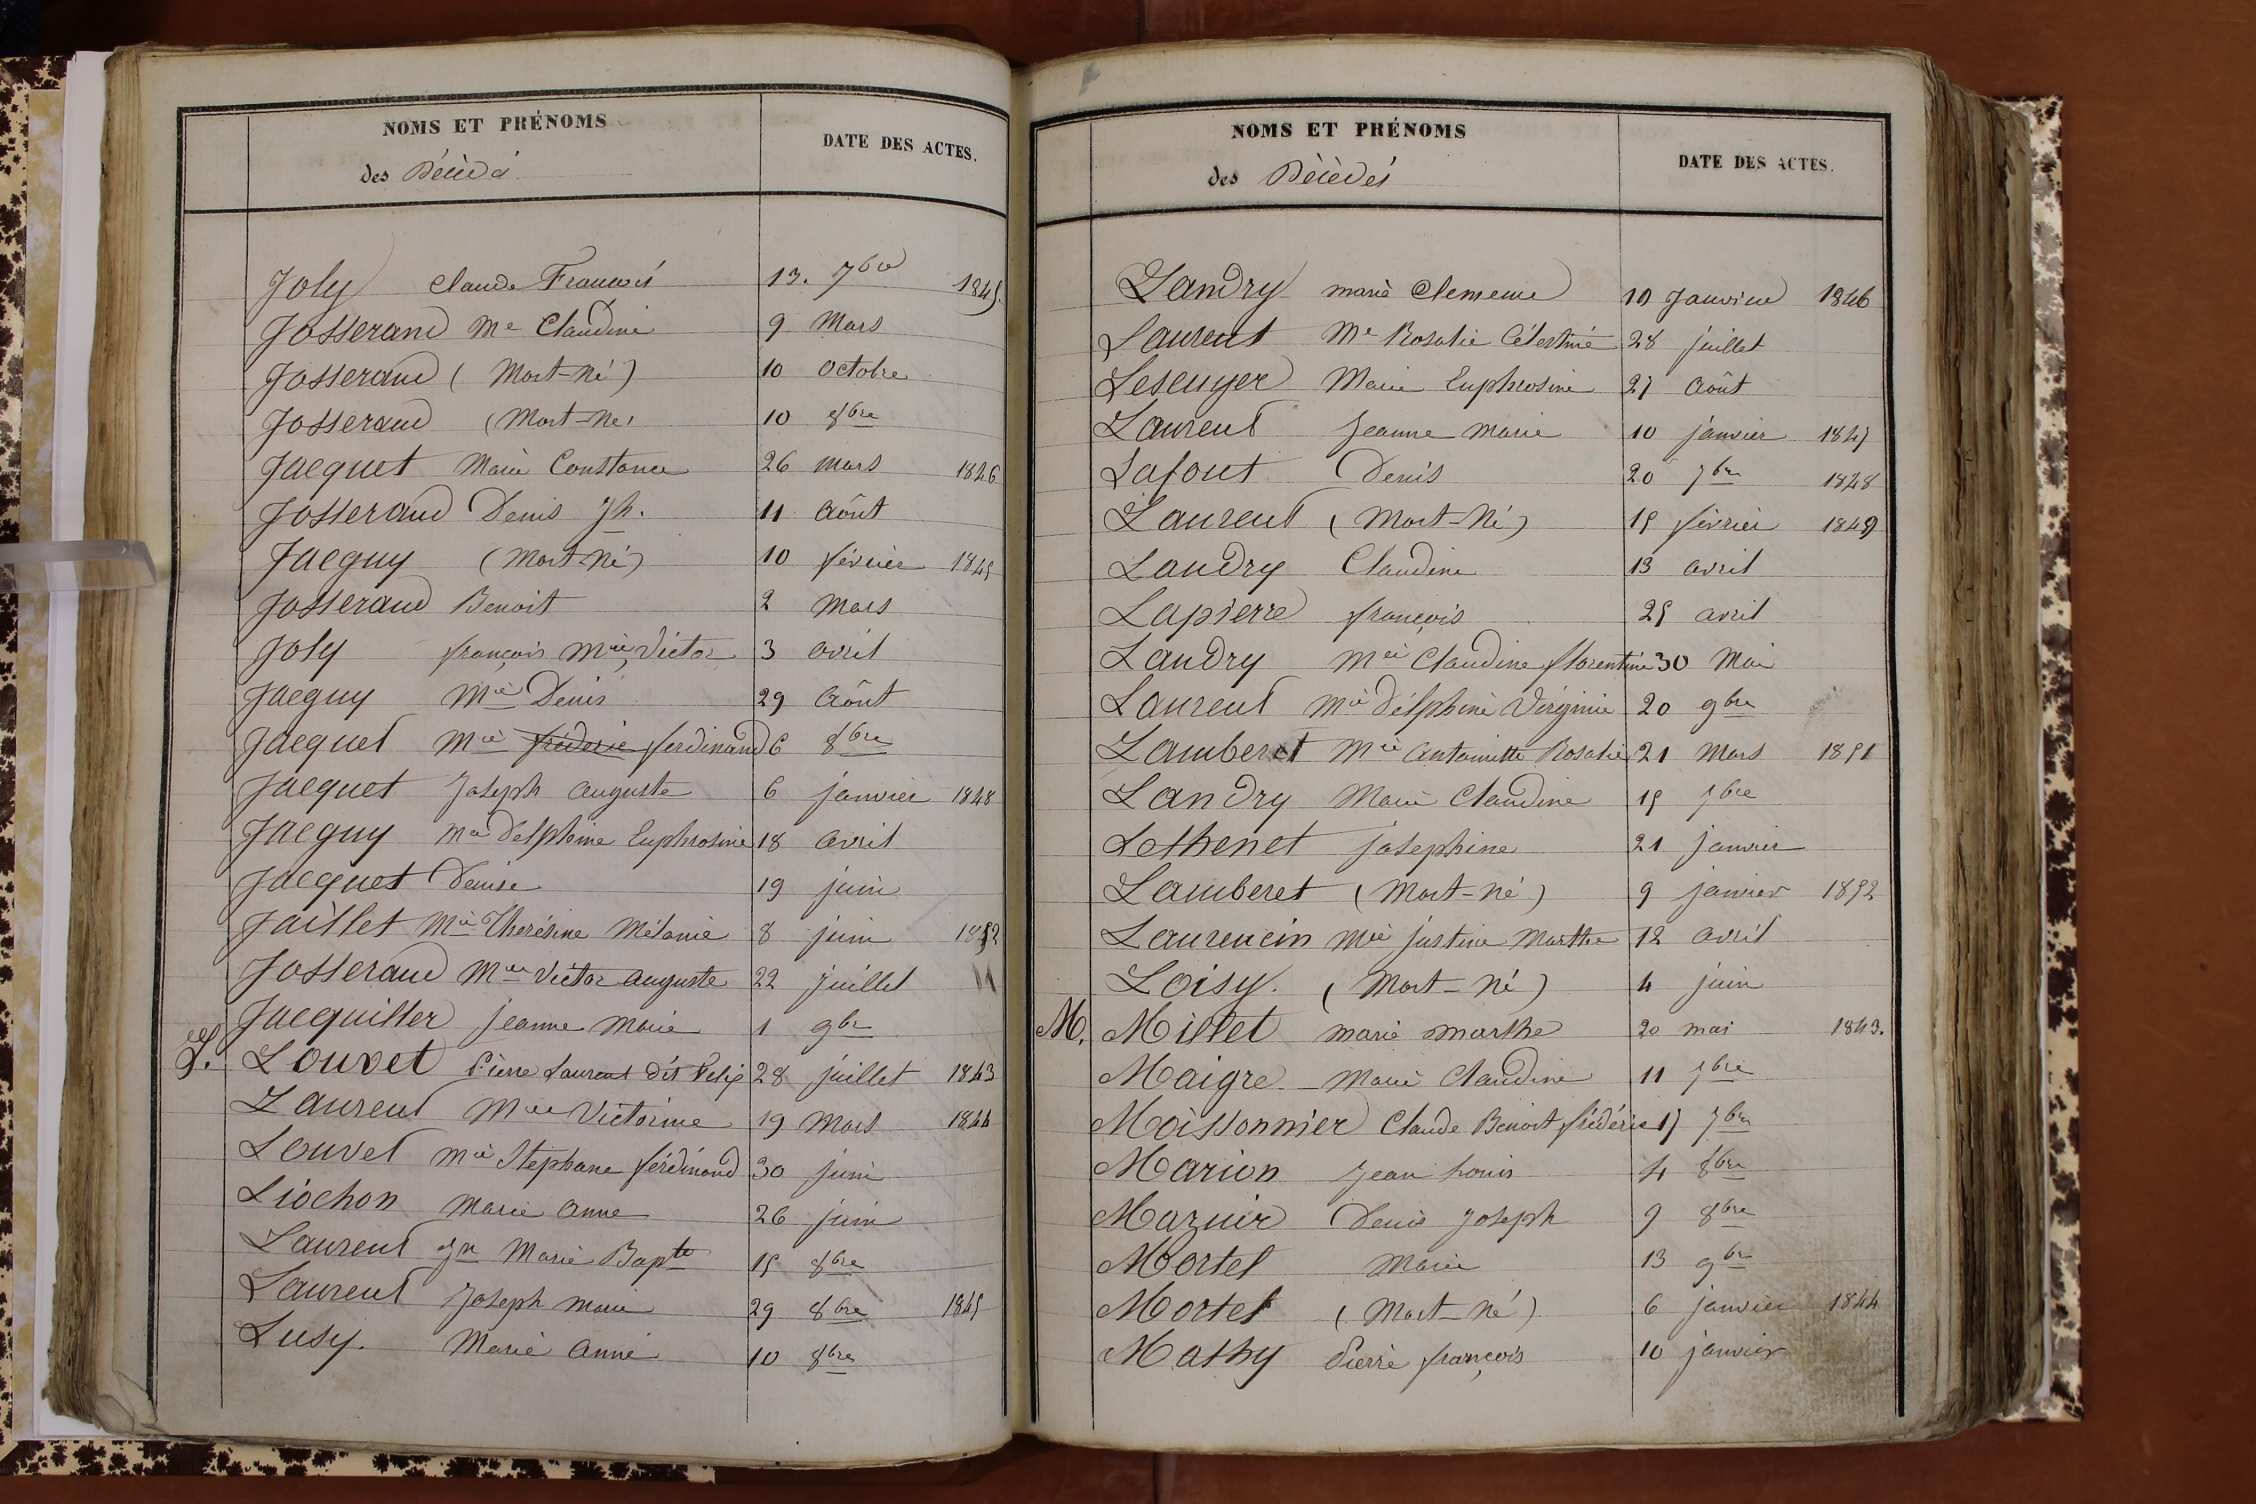 NOMS ET PRÉNOMS DATE DES ACTES.
des Décédés
Joly Claude François 13. 7bre 1845.
Josserand Me Claudine 9 Mars
Josserand (Mort-Né) 10 octobre
Josserand (Mort-Né) 10 8bre
Jacquet Marie Constance 26 mars 1846
Josserand Denis Jh. 11 Août
Jacquy (Mort-Né) 10 février 1845
Josserand Benoit 2 Mars
Joly françois Mie Victor 3 avril
Jacquy Mie Denis 29 Août
Jacquet Mie fréderic ferdinand 6 8bre
Jacquet Joseph auguste 6 janvier 1848
Jacquy Mie Delphine Euphrosine 18 avril
Jacquet Denise 19 juin
Jaillet Mie Thérésine Mélanie 8 juin 1852
Josserand Mie Victor auguste 22 juillet
Jacquiller Jeanne Marie 1 9bre
L. Louvet Pierre Laurent dit Felix 28 juillet 1843
Laurent Mie Victorine 19 Mars 1844
Louvet Mie Stéphane ferdinand 30 juin
Liochon Marie Anne 26 juin
Laurent Jn Marie Bapte 15 8bre
Laurent Joseph Marie 29 8bre 1845
Lusy. Marie Anne 10 8bre
NOMS ET PRÉNOMS DATE DES ACTES.
des Décédés
Landry marie Clemence 10 Janvier 1846
Laurent Me Rosalie Célestine 28 juillet
Lescuyer Marie Euphrosine 27 Août
Laurent Jeanne Marie 10 janvier 1847
Lafout Denis 20 7bre 1848
Laurent (Mort-Né) 15 février 1849
Landry Claudine 13 avril
Lapierre françois 25 avril
Landry Mie Claudine florentine 30 Mai
Laurent Mie Delphine Virginie 20 9bre
Lamberet Mie Antoinette Rosalie 21 Mars 1851
Landry Marie Claudine 15 7bre
Lethenet josephine 21 janvier
Lamberet (Mort-Né) 9 janvier 1852
Laurencin Mie justine Marthe 12 avril
Loisy. (Mort-Né) 4 juin
M. Millet marie marthe 20 mai 1843.
Maigre Marie Claudine 11 7bre
Moissonnier Claude Benoit frédéric 17 7bre
Marion Jean Louis 4 8bre
Mazuir Denis Joseph 9 8bre
Mortel Marie 13 9bre
Mortel (Mort-Né) 6 janvier 1844
Mathy Pierre françois 10 janvier